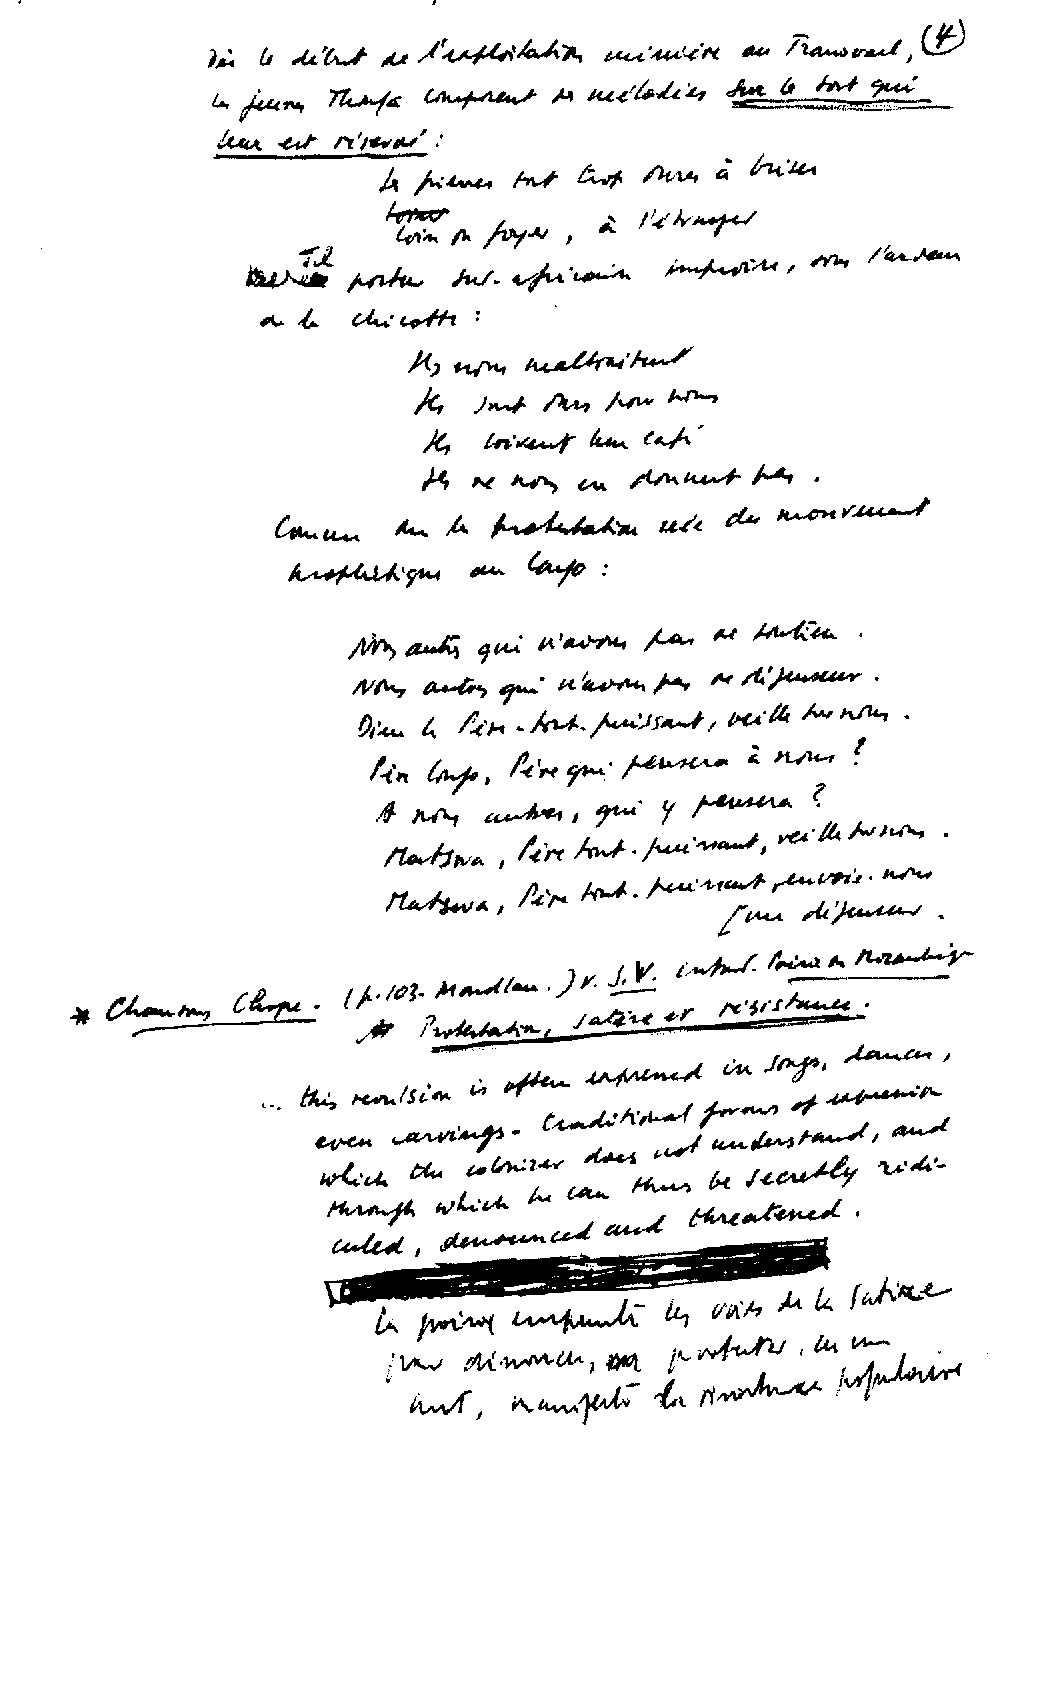 (4)
Dès le début de l'exploitation minière au Transvaal,
les jeunes Thonga composent des mélodies sur le sort qui
leur est réservé :
Les pierres sont trop dures à briser
loin du foyer, à l'étranger
Tel porteur sud-africain improvise, sous
de la chicotte :
Ils nous maltraitent
Ils sont durs pour nous
Ils boivent leur café
Ils ne nous en donnent pas.
Comme dans la protestation née du mouvement
prophétique au Congo :
Nous autres qui n'avons pas de soutien.
Nous autres qui n'avons pas de défenseur.
Dieu le Père-tout-puissant, veille sur nous.
Père Congo, Père qui pensera à nous ?
A nous autres, qui y pensera ?
Matswa, Père tout-puissant, veille sur nous.
Matswa, Père tout-puissant, envoie-nous
[un défenseur.
* Chansons Chope. (p. 103. Mondlane.) v. S.V. introd. Poésie du Mozambique
Protestation, satire et résistance.
... this revulsion is often expressed in songs, dances,
even carvings - traditional forms of expression
which the colonizer does not understand, and
through which he can thus be secretly ridi-
culed, denounced and threatened.
La poésie emprunte les voies de la satire
pour dénoncer, protester, en un
mot, manifester la résistance populaire